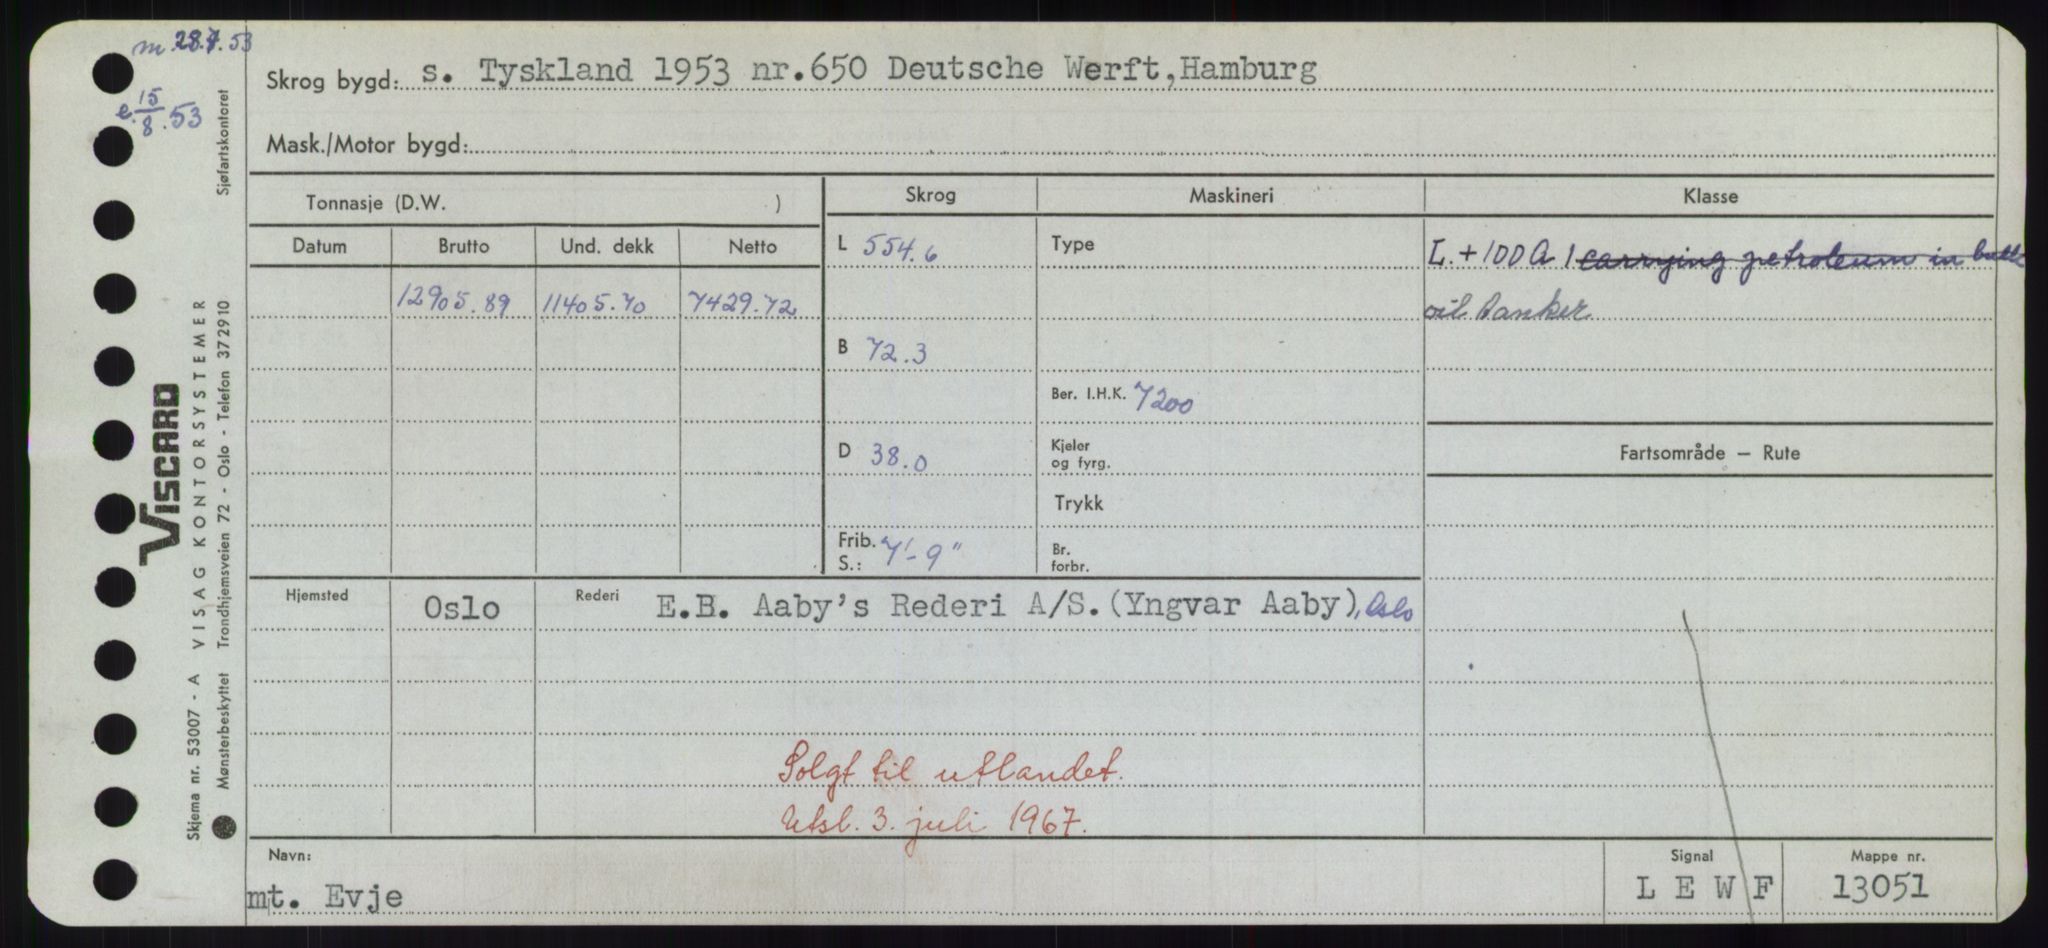 m 28.7.53
e. 15/8.53
Skrog bygd: s. Tyskland 1953 nr.650 Deutsche Werft,Hamburg
Mask./Motor bygd:
Tonnasje (D.W. )
Skrog
Maskineri
Klasse
Datum
Brutto
Und. dekk
Netto
12905.89
11405.70
7429.72
L 554.6
B 72.3
D 38.0
Frib.
S.: 7'-9"
Type
Ber. I.H.K. 7200
Kjeler
og fyrg.
Trykk
Br.
forbr.
L. + 100 A 1 carrying petroleum in bulk
oil tanker
Fartsområde — Rute
Hjemsted Oslo
Rederi E.B. Aaby's Rederi A/S.(Yngvar Aaby), Oslo
Solgt til utlandet.
Utsl. 3. juli 1967.
Navn:
mt. Evje
Signal
L E W F
Mappe nr.
13051
Sjøfartskontoret
VISCARD
VISAG KONTORSYSTEMER
Trondhjemsveien 72 - Oslo - Telefon 372910
Skjema nr. 53007 - A
Mønsterbeskyttet